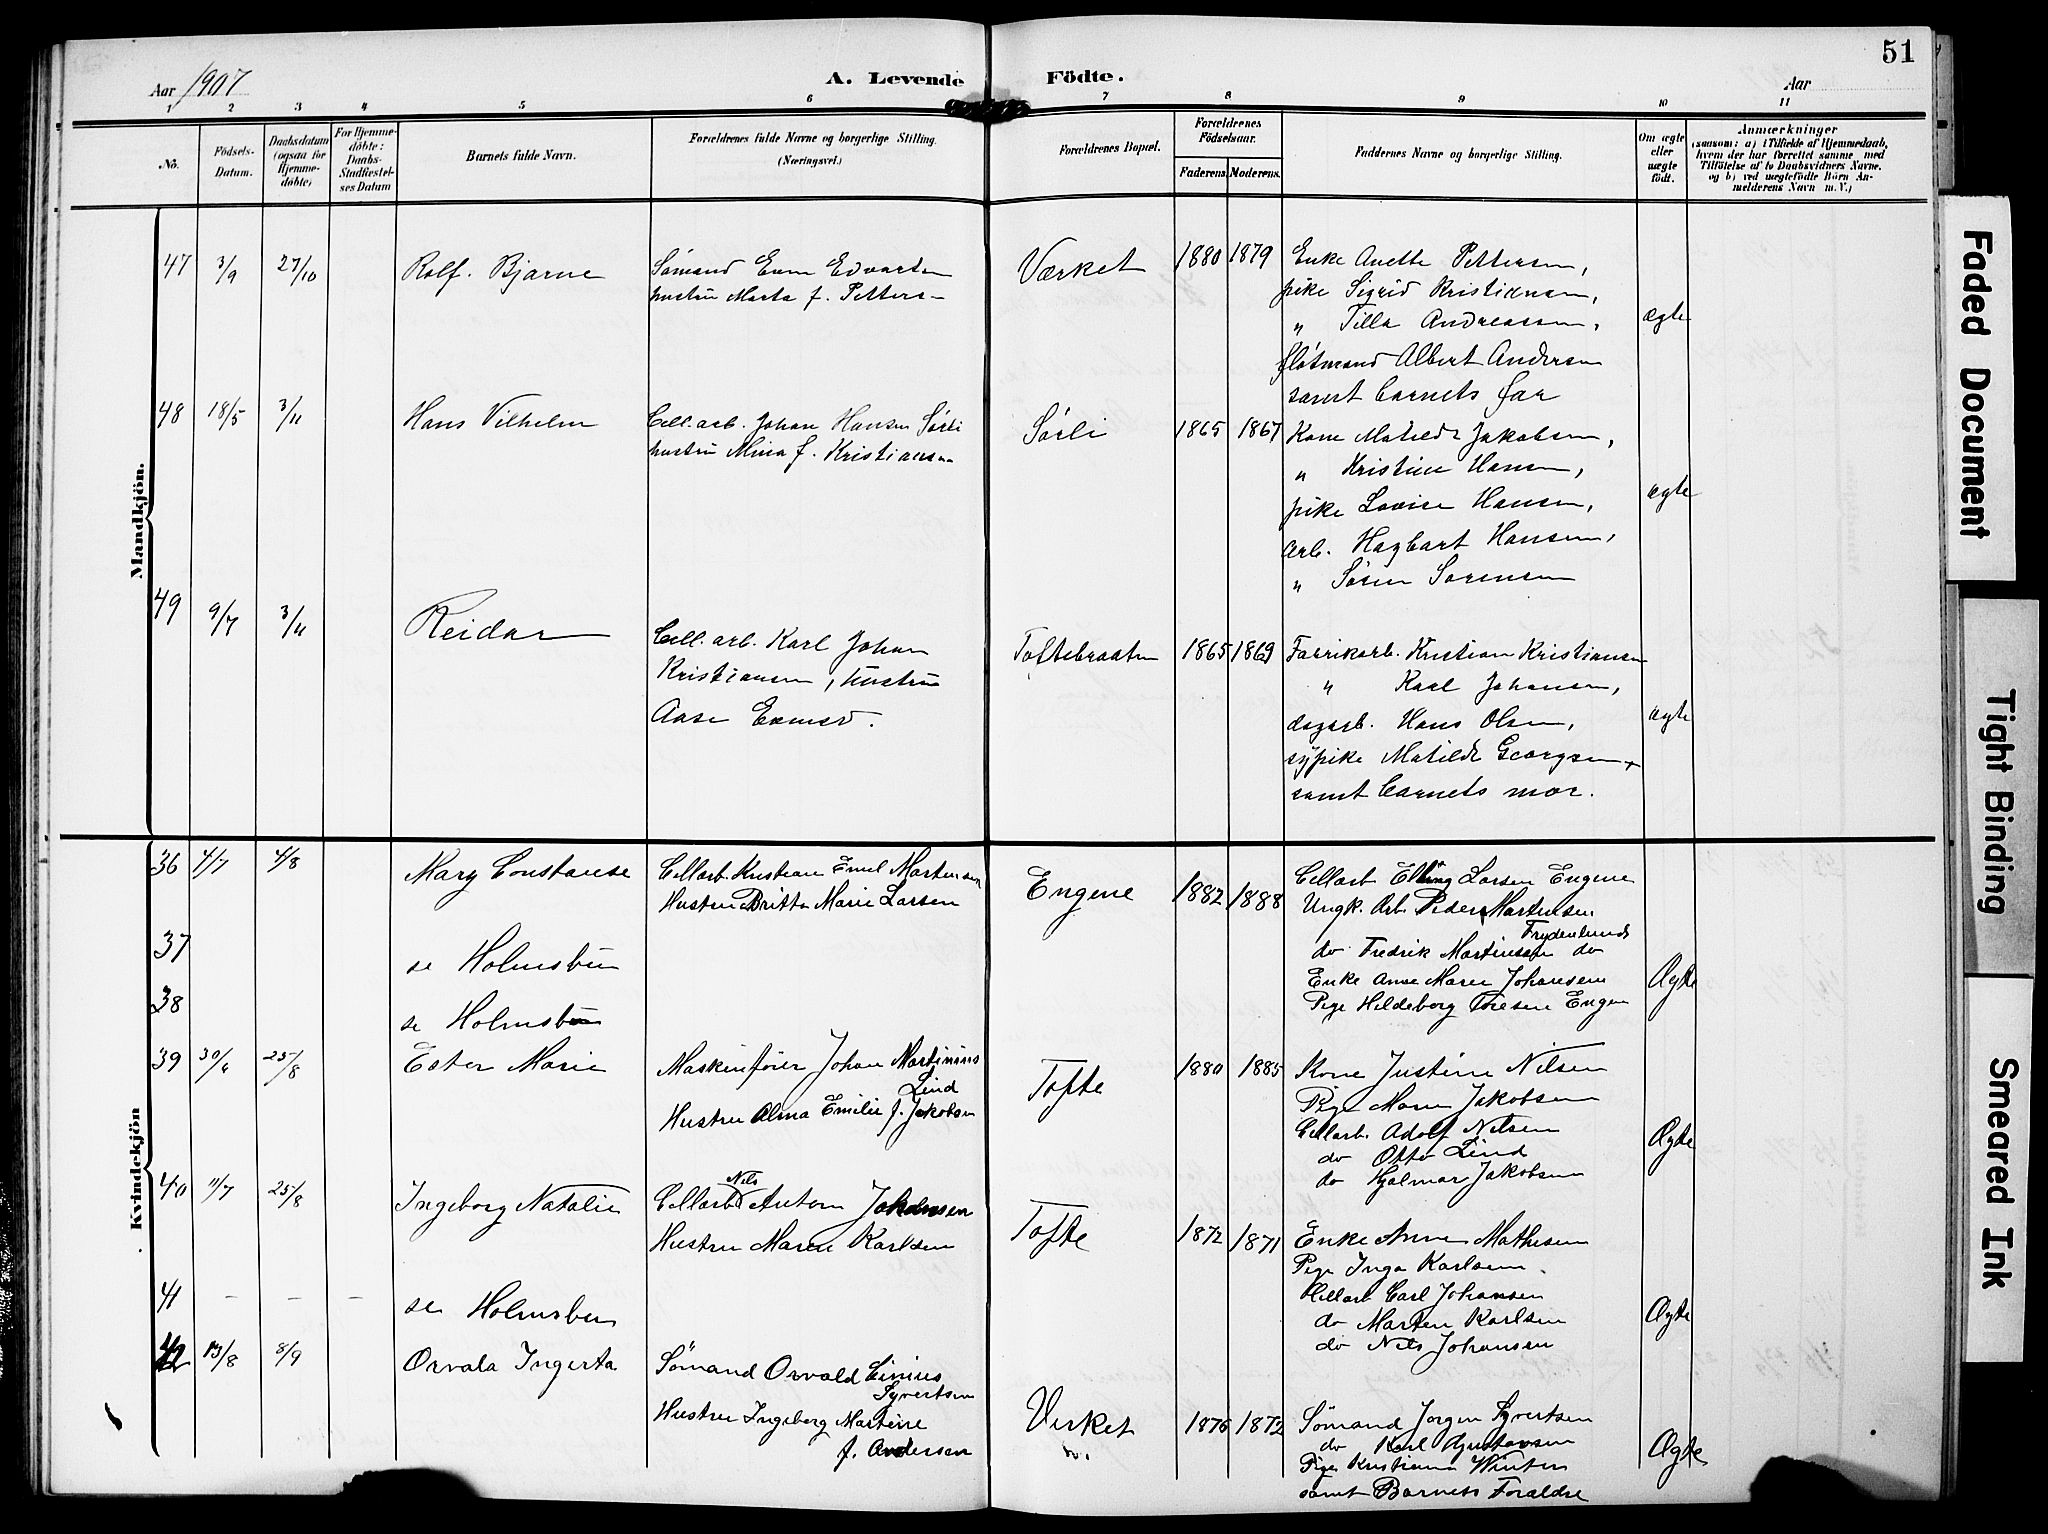 51
Aar 1907
A. Levende Födte.
Aar
1 2 3 4 5 6 7 8 9 10 11
No.
Födsels-
Datum.
Daabsdatum
(ogsaa for
Hjemme-
döbte)
For Hjemme-
döbte:
Daabs-
Stadfæstel-
ses Datum
Barnets fulde Navn.
Forældrenes fulde Navne og borgerlige Stilling.
(Næringsvei.)
Forældrenes Bopæl.
Forældrenes
Födselsaar.
Faderens. Moderens.
Faddernes Navne og borgerlige Stilling.
Om ægte
eller
uægte
födt.
Anmærkninger
(saasom: a) i Tilfælde af Hjemmedaab,
hvem der har forrettet samme med
Tilföielse af to Daabsvidners Navne,
og b) ved uægtefödte Börn An-
melderens Navn m. V.)
Mandkjön.
47 3/9 27/10 Rolf. Bjarne
Sömand Edvartsen
hustru Marta f. Petters
Værket 1880 1879
Enke Anette Pettersen,
pike Sigrid Kristiansen,
" Tilla Andreassen,
flötmand Albert Andersen
samt barnets far
ægte
48 18/5 3/11 Hans Vilhelm
Cell. arb. Johan Hansen Sørli
hustru Mina f. Kristiansen
Sørli 1865 1867
Kone Matilde Jakobsen,
" Kristine Hansen,
pike Lovise Hansen,
arb. Hagbart Hansen,
" Søren Sørensen
ægte
49 9/7 3/11 Reidar
Cell. arb. Karl Johan
Kristiansen, hustru
Aase
Toftebraaten 1865 1869
Fabrikarb. Kristian Kristiansen
" Karl Johansen,
dagarb. Hans Olsen,
sypike Matilde Georgsen
samt barnets mor.
ægte
Kvindekjön
36 4/7 4/8 Mary Constanse
Cellarb. Kristian Emil Martinsen
Hustru Britta Marie Larsen
Engene 1882 1888
Cellarb Elling Larsen Engene
Ungk. Arb. Peder Martinsen
Frydenlund
do Fredrik Martinsen do
Enke Anne Marie Johansen
Pige Hildeborg Toresen Engen
Ægte
37 se Holmsbu
38 se Holmsbu
39 30/6 25/8 Ester Marie
Maskinfører Johan Martinius
Lind
Hustru Alma Emilie f. Jakobsen
Tofte 1880 1885
Kone Justine Nilsen
Pige Marie Jakobsen
Cellarb. Adolf Nilsen
do Otto Lind
do Hjalmar Jakobsen
Ægte
40 11/7 25/8 Ingeborg Natalie
Nils
Cellarb Anton Johansen
Hustru Maren Karlsen
Tofte 1872 1871
Enke Anne Mathisen
Pige Inga Karlsen.
Cellarb Carl Johansen
do Marten Karlsen
do Nils Johansen
Ægte
41 – – – se Holmsbu
42 13/8 8/9 Osvala Ingerta
Sömand Osvald Einius
Syvertsen
Hustru Ingeborg Martine
f. Andersen
Verket 1876 1872
Sömand Jørgen Syvertsen
do Karl Gustavsen
Pige Kristiana Winter
samt Barnets Foraldre
Ægte
Faded Document
Tight Binding
Smeared Ink